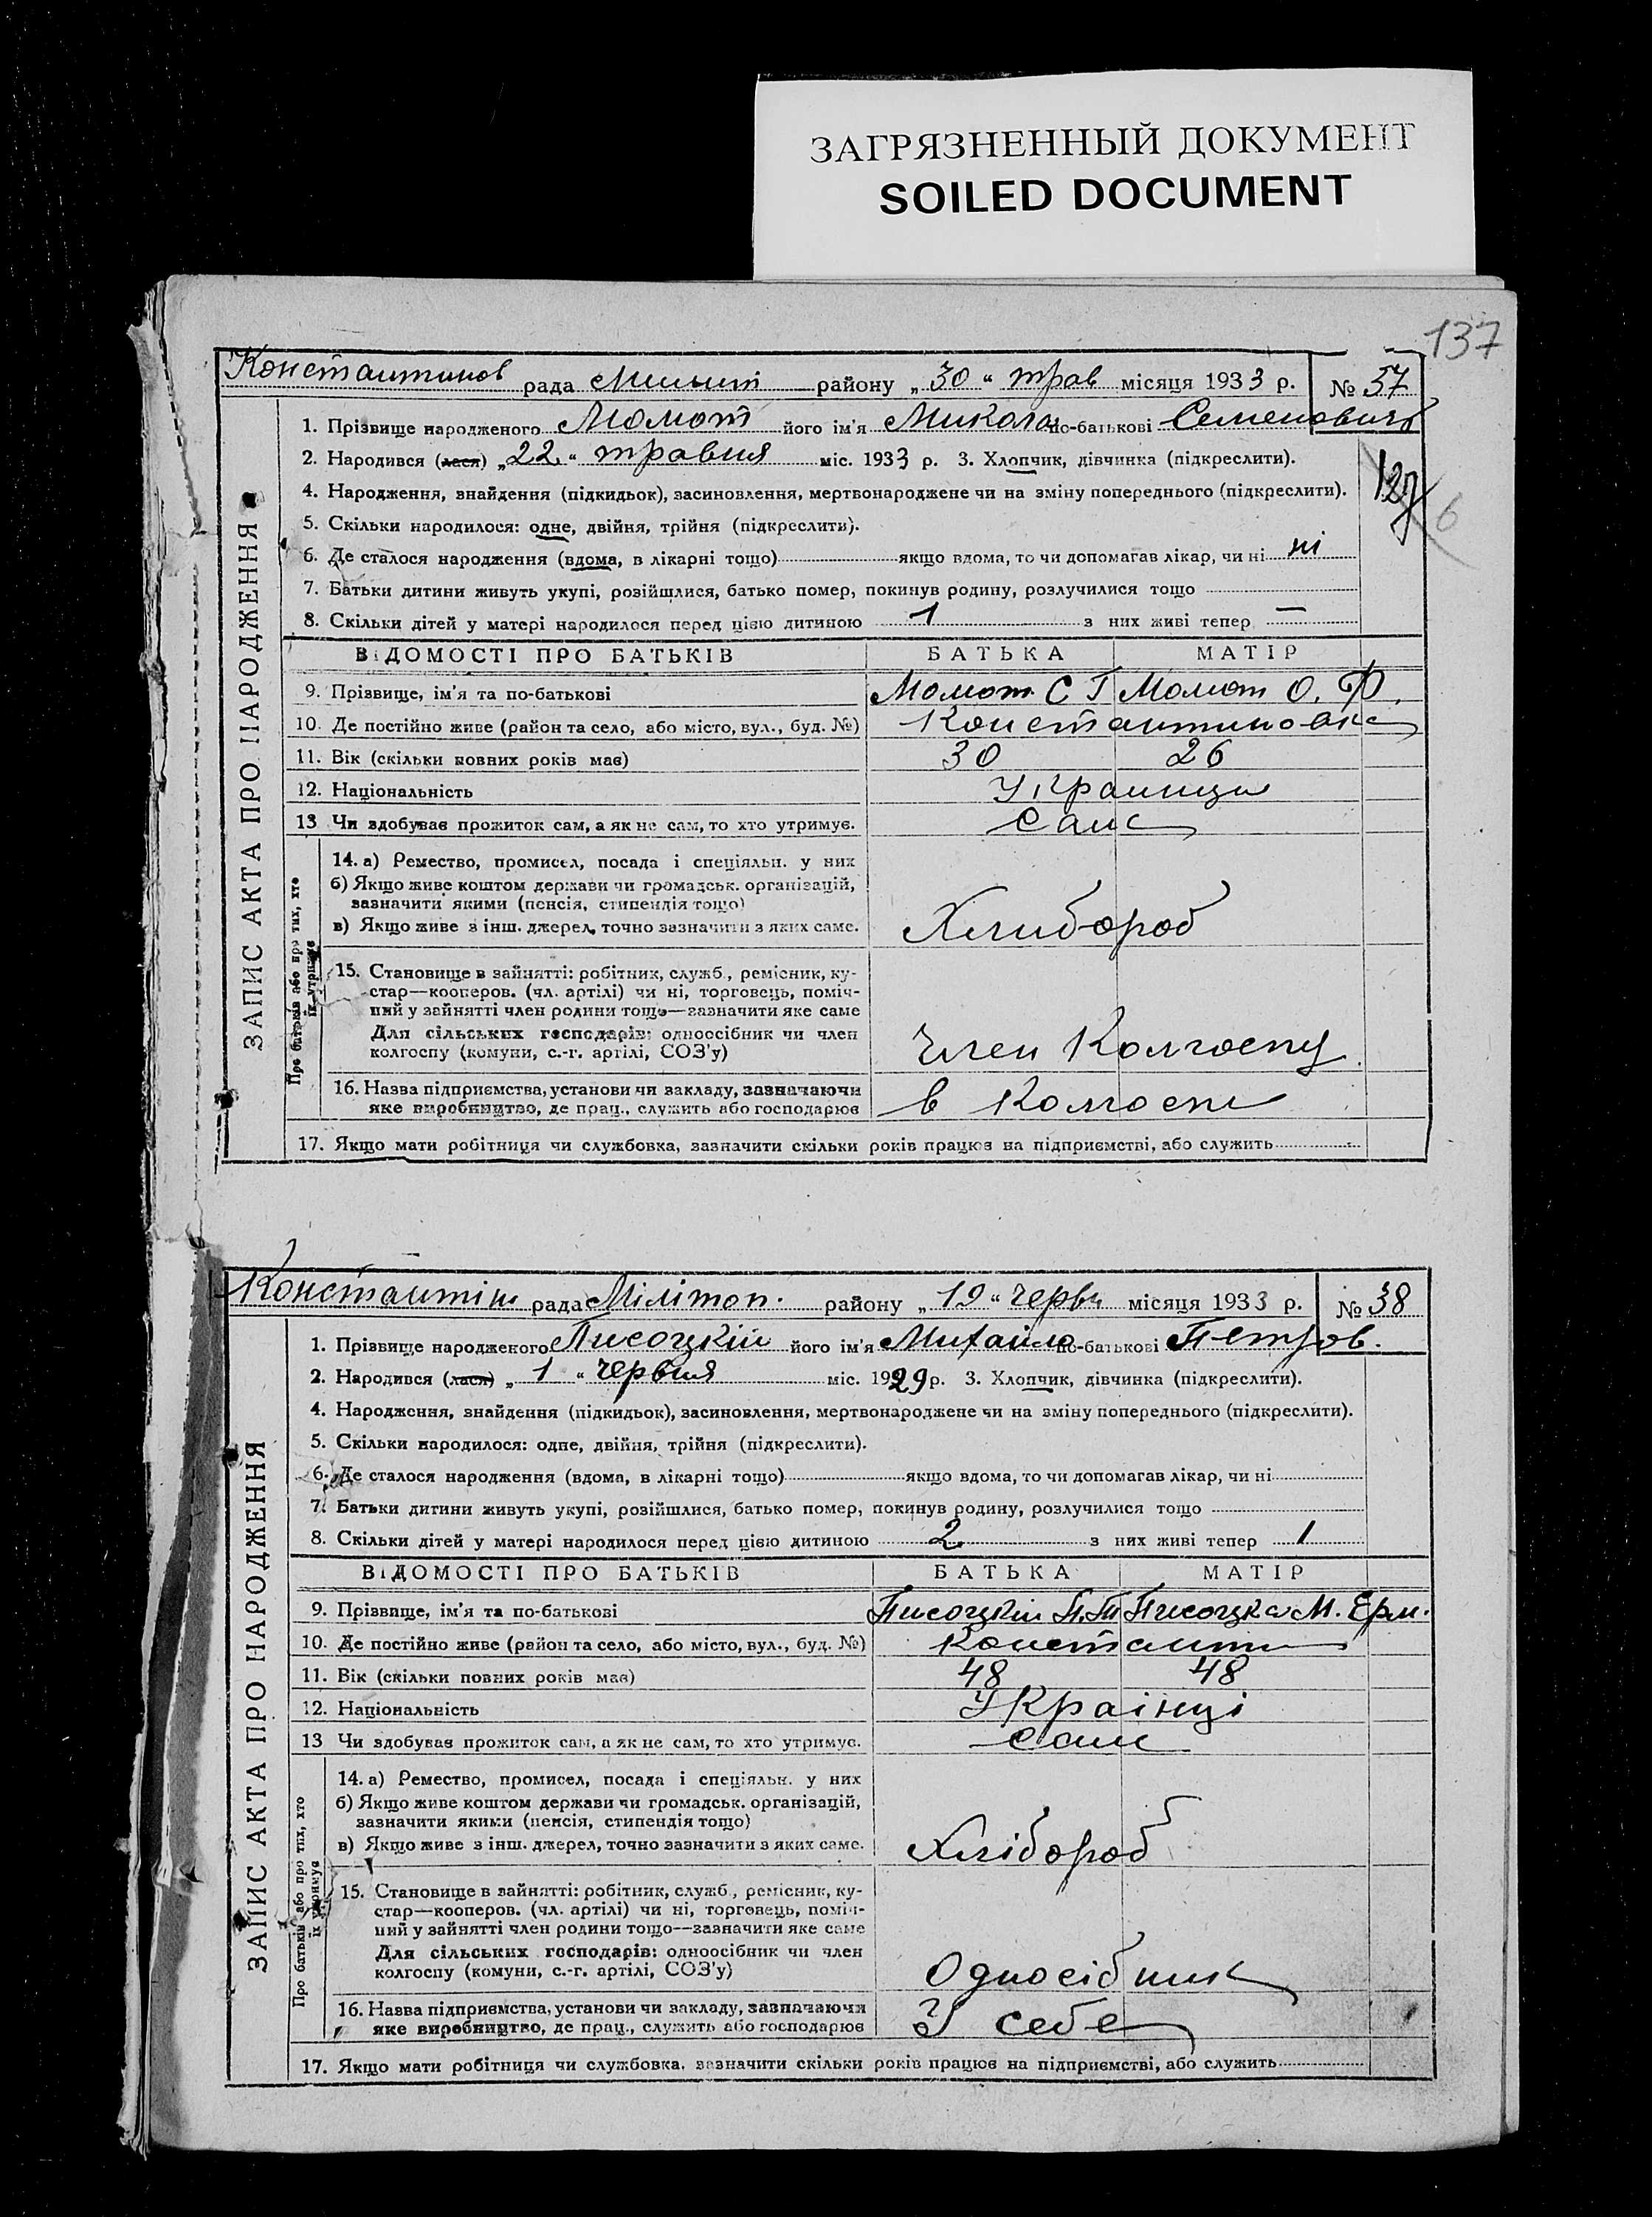 ЗАГРЯЗНЕННЫЙ ДОКУМЕНТ
SOILED DOCUMENT
137
Константинов рада район у „30“ трав місяця 1933 р. № 37
1. Прізвище народженого Момот його ім'я Микола по-батькові Семенович
2. Народився (лася) „22“ травня міс. 1933 р. 3. Хлопчик, дівчинка (підкреслити).
4. Народження, знайдення (підкидьок), засиновлення, мертвонароджене чи на зміну попереднього (підкреслити).
5. Скільки народилося: одне, двійня, трійня (підкреслити).
6. Де сталося народження (вдома, в лікарні тощо) якщо вдома, то чи допомагав лікар, чи ні ні
7. Батьки дитини живуть укупі, розійшлися, батько помер, покинув родину, розлучилися тощо
8. Скільки дітей у матері народилося перед цією дитиною 1 з них живі тепер —
ЗАПИС АКТА ПРО НАРОДЖЕННЯ
ВІДОМОСТІ ПРО БАТЬКІВ БАТЬКА МАТІР
9. Прізвище, ім'я та по-батькові Момот С Г Момот О. Ф.
10. Де постійно живе (район та село, або місто, вул., буд. №) Константиновка
11. Вік (скільки повних років має) 30 26
12. Національність Украинци
13 Чи здобуває прожиток сам, а як не сам, то хто утримує. Сами
Про батьків або про тих, хто їх утримує
14. а) Ремество, промисел, посада і спеціяльн. у них
б) Якщо живе коштом держави чи громадськ. організацій,
зазначити якими (пенсія, стипендія тощо)
в) Якщо живе з інш. джерел, точно зазначити з яких саме. Хлибороб
15. Становище в зайнятті: робітник, служб., ремісник, ку-
стар—кооперов. (чл. артілі) чи ні, торговець, поміч-
ний у зайнятті член родини тощо—зазначити яке саме
Для сільських господарів: одноосібник чи член
колгоспу (комуни, с.-г. артілі, СОЗ'у) Член Колгоспу
16. Назва підприємства, установи чи закладу, зазначаючи
яке виробництво, де прац., служить або господарює в Колгоспи
17. Якщо мати робітниця чи службовка, зазначити скільки років працює на підприємстві, або служить
Константін рада Мілітоп. району „19“ червн місяця 1933 р. № 38
1. Прізвище народженого Писоцкій його ім'я Михайло по-батькові Петров.
2. Народився (лася) „1“ червня міс. 1929 р. 3. Хлопчик, дівчинка (підкреслити).
4. Народження, знайдення (підкидьок), засиновлення, мертвонароджене чи на зміну попереднього (підкреслити).
5. Скільки народилося: одне, двійня, трійня (підкреслити).
6. Де сталося народження (вдома, в лікарні тощо) якщо вдома, то чи допомагав лікар, чи ні
7. Батьки дитини живуть укупі, розійшлися, батько помер, покинув родину, розлучилися тощо
8. Скільки дітей у матері народилося перед цією дитиною 2 з них живі тепер 1
ЗАПИС АКТА ПРО НАРОДЖЕННЯ
ВІДОМОСТІ ПРО БАТЬКІВ БАТЬКА МАТІР
9. Прізвище, ім'я та по-батькові Писоцкій П. Т Писоцка М. Ерм.
10. Де постійно живе (район та село, або місто, вул., буд. №) Константин
11. Вік (скільки повних років має) 48 48
12. Національність Українці
13 Чи здобуває прожиток сам, а як не сам, то хто утримує. Сами
Про батьків або про тих, хто їх утримує
14. а) Ремество, промисел, посада і спеціяльн. у них
б) Якщо живе коштом держави чи громадськ. організацій,
зазначити якими (пенсія, стипендія тощо)
в) Якщо живе з інш. джерел, точно зазначити з яких саме. Хлібороб
15. Становище в зайнятті: робітник, служб., ремісник, ку-
стар—кооперов. (чл. артілі) чи ні, торговець, поміч-
ний у зайнятті член родини тощо—зазначити яке саме
Для сільських господарів: одноосібник чи член
колгоспу (комуни, с.-г. артілі, СОЗ'у) Односібник
16. Назва підприємства, установи чи закладу, зазначаючи
яке виробництво, де прац., служить або господарює У себе
17. Якщо мати робітниця чи службовка, зазначити скільки років працює на підприємстві, або служить